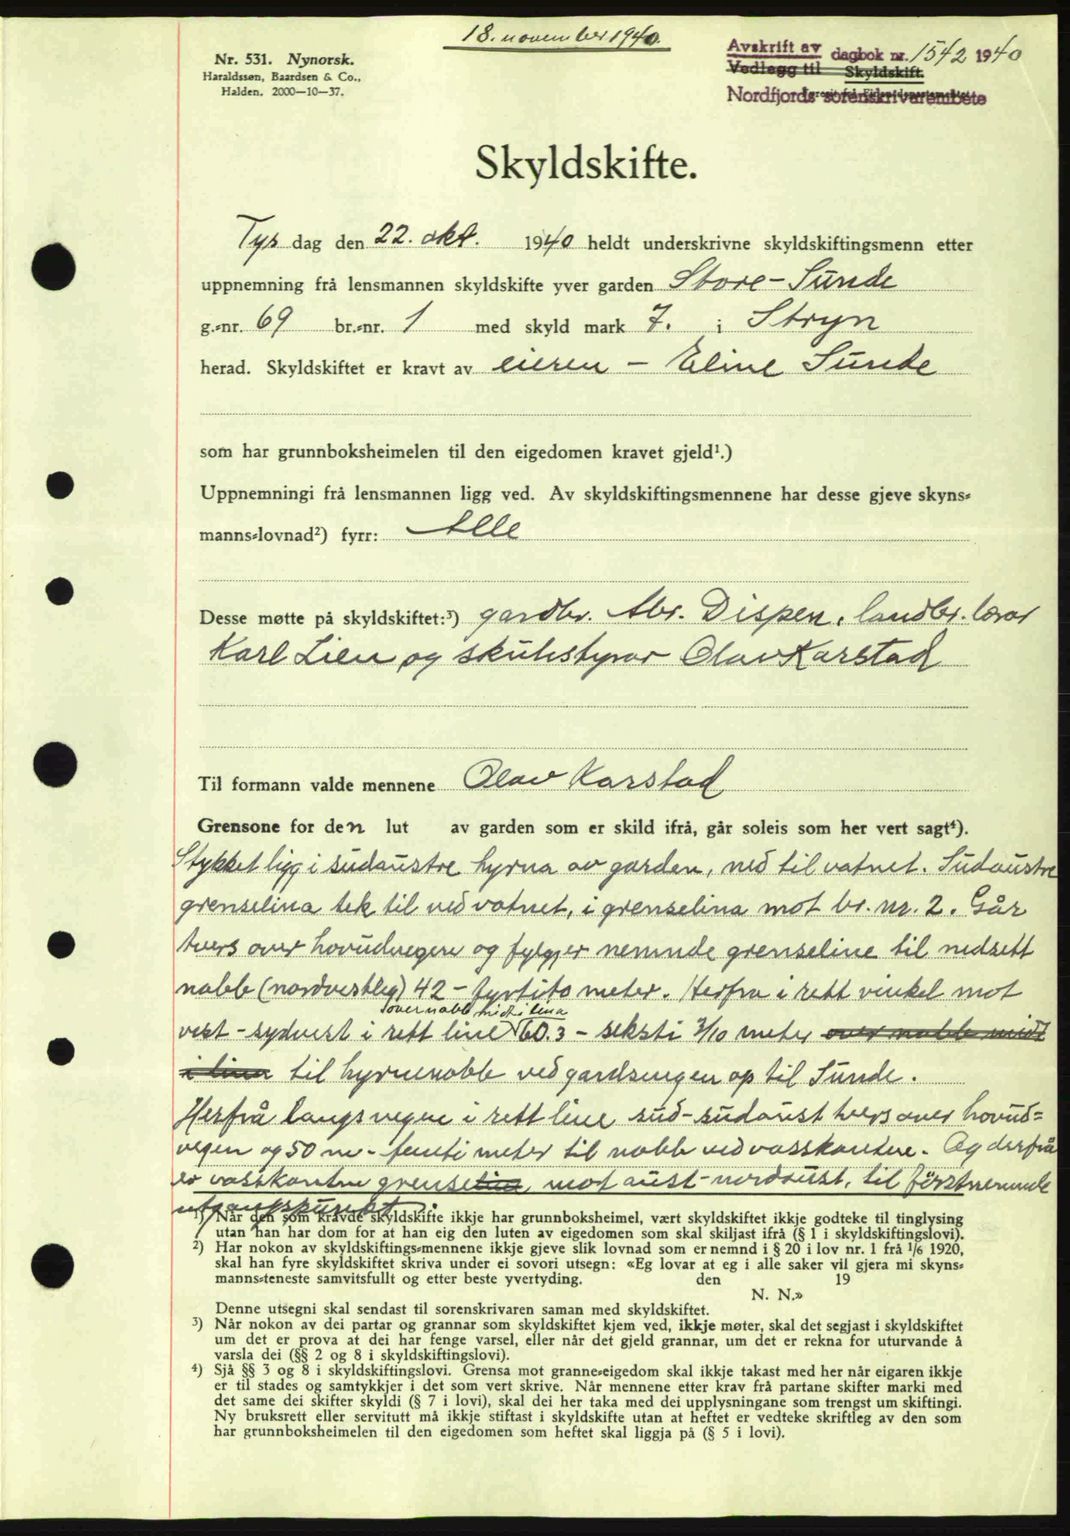 18. november 1940.
Nr. 531. Nynorsk.
Haraldssøn, Baardsen & Co.,
Halden. 2000—10—37.
Avskrift av dagbok nr. 1542 1940
Vedlegg til Skyldskift.
Nordfjords sorenskrivarembete
Skyldskifte.
Tys dag den 22. okt. 1940 heldt underskrivne skyldskiftingsmenn etter
uppnemning frå lensmannen skyldskifte yver garden Store-Sunde
g.-nr. 69 br.-nr. 1 med skyld mark 7. i Stryn
herad. Skyldskiftet er kravt av eieren - Eline Sunde
som har grunnboksheimelen til den eigedomen kravet gjeld¹.)
Uppnemningi frå lensmannen ligg ved. Av skyldskiftingsmennene har desse gjeve skyns-
manns-lovnad²) fyrr: Alle
Desse møtte på skyldskiftet:³) gardbr. Abr. Dispen, landbr. lærar
Karl Lien og skulestyrar Olav Karstad
Til formann valde mennene Olav Karstad
Grensone for den lut av garden som er skild ifrå, går soleis som her vert sagt⁴).
Stykket ligg i sudaustre hyrna av garden, ned til vatnet. Sudaustre
grenselina tek til ved vatnet, i grenselina mot br. nr. 2. Går
tvers over hovudvegen og fylgjer nemnde grenseline til nedsett
nabb (nordvestleg) 42 - fyrtito meter. Herfra i rett vinkel mot
over nabb midt i lina
vest-sydvest i rett line 60.3 - seksti 3/10 meter over nabb midt
i lina til hyrnenabb ved gardsvegen op til Sunde.
Herfrå langs vegen i rett line sud-sudaust tvers over hovud=
vegen og 50 m - femti meter til nabb ved vasskanten. Og derfrå
er vasskanten grenselina mot aust-nordaust, til förstnemnde
utgangspunkt.
¹) Når den som kravde skyldskifte ikkje har grunnboksheimel, vært skyldskiftet ikkje godteke til tinglysing
utan han har dom for at han eig den luten av eigedomen som skal skiljast ifrå (§ 1 i skyldskiftingslovi).
²) Har nokon av skyldskiftings-mennene ikkje gjeve slik lovnad som er nemnd i § 20 i lov nr. 1 frå 1/6 1920,
skal han fyre skyldskiftet skriva under ei sovori utsegn: «Eg lovar at eg i alle saker vil gjera mi skyns-
manns-teneste samvitsfullt og etter beste yvertyding. den 19
N. N.»
Denne utsegni skal sendast til sorenskrivaren saman med skyldskiftet.
³) Når nokon av dei partar og grannar som skyldskiftet kjem ved, ikkje møter, skal det segjast i skyldskiftet
um det er prova at dei har fenge varsel, eller når det gjeld grannar, um det er rekna for uturvande å
varsla dei (§§ 2 og 8 i skyldskiftingslovi).
⁴) Sjå §§ 3 og 8 i skyldskiftingslovi. Grensa mot granne-eigedom skal ikkje takast med her når eigaren ikkje
er til stades og samtykkjer i det som vert skrive. Når mennene etter krav frå partane skifter marki med
det same dei skifter skyldi (§ 7 i lovi), skal dei her taka med dei upplysningane som trengst um skiftingi.
Ny bruksrett eller servitutt må ikkje stiftast i skyldskifte utan at heftet er vedteke skriftleg av den som
har grunnboksheimelen til den eigedomen som heftet skal liggja på (§ 5 i lovi).